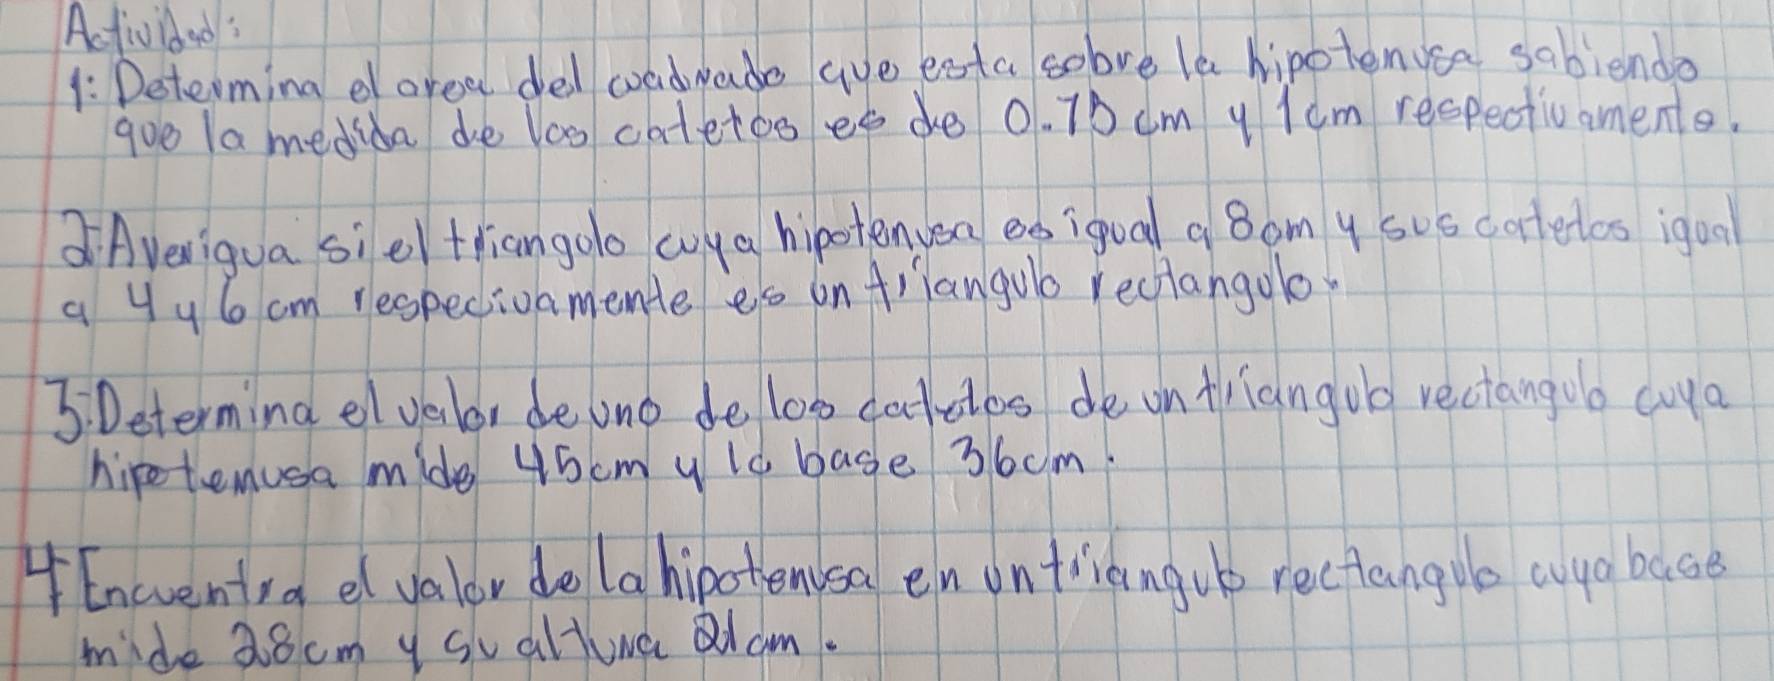 Actividad:
1: Determina el area del cuadrado que esta sobre la hipotenusa sabiendo
que la medida de los catetos es de 0.75 cm y 1cm respectivamente.
2: Averigua si el triangulo cuya hipotenusa es igual a 8cm y sus catetos igual
a 4 y 6 cm respecivamente es un triangulo rectangulo.
3: Determina el valor de uno de los catetos de un triangulo rectangulo cuya
hipotenusa mide 45cm y la base 36cm.
4 Encuentra el valor de la hipotenusa en un triangulo rectangulo cuya base
mide 28cm y su altura 21cm.